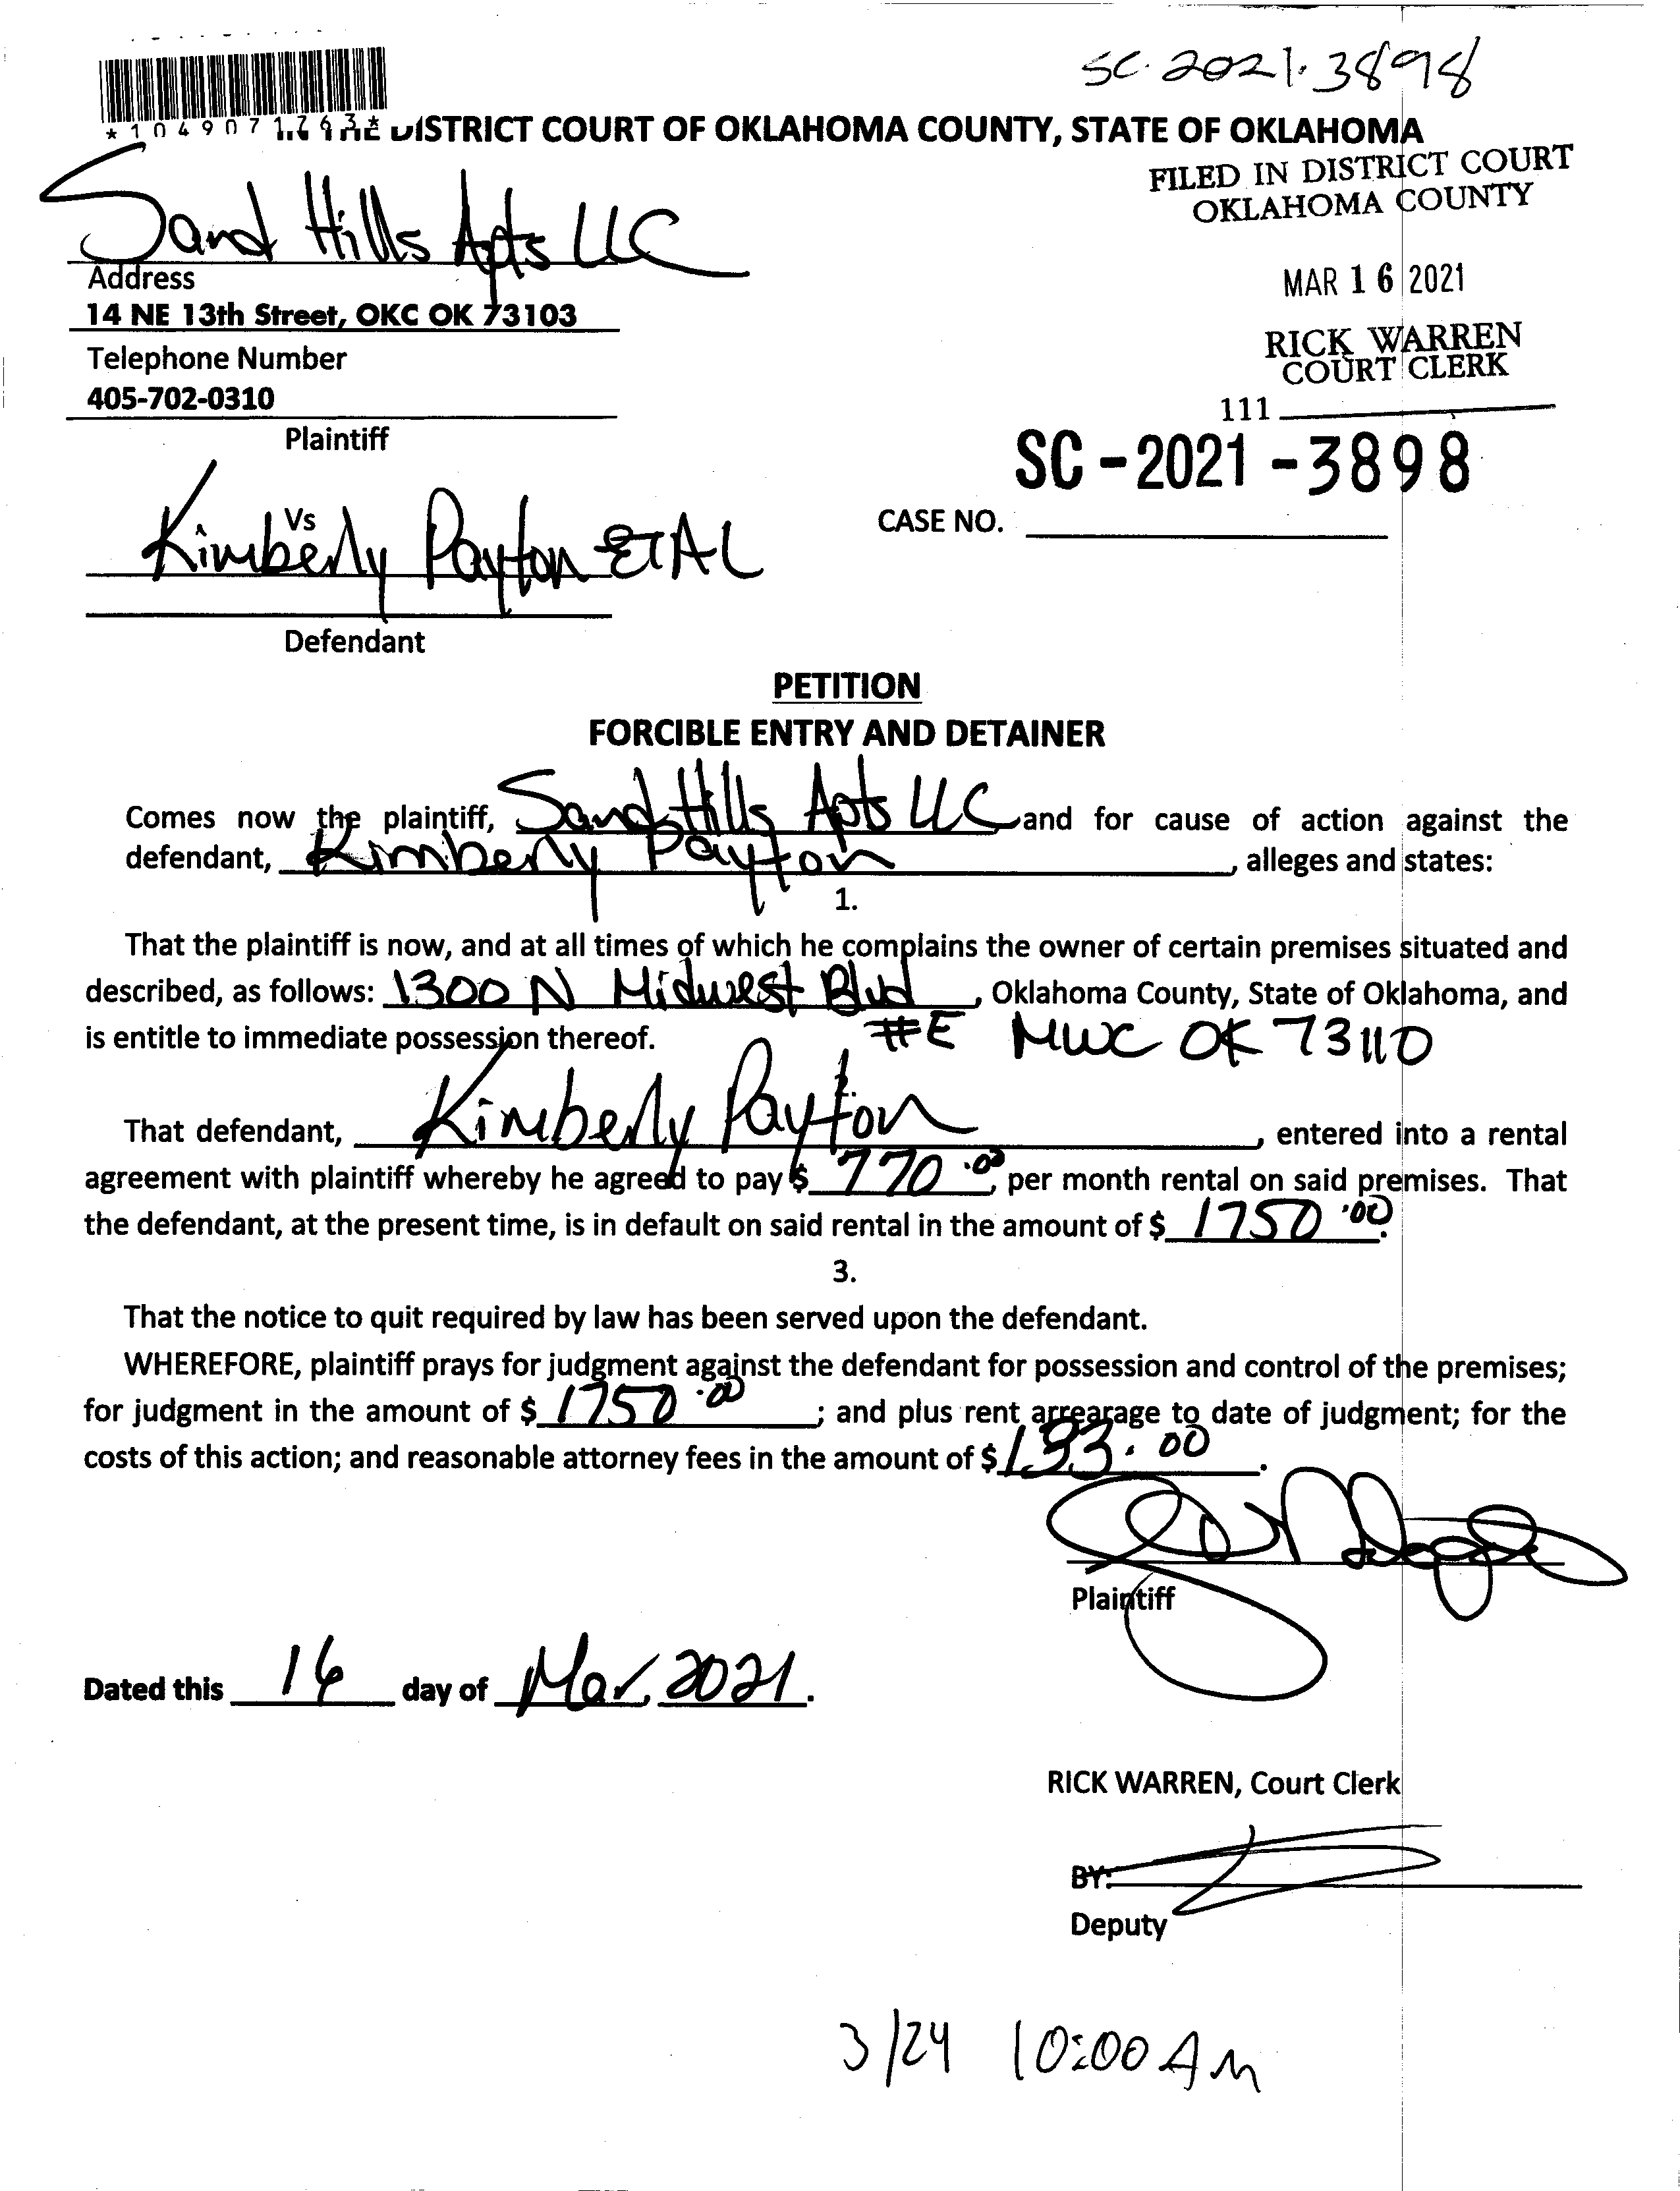 SC-2021-3898
*1049071763*
IN THE DISTRICT COURT OF OKLAHOMA COUNTY, STATE OF OKLAHOMA
FILED IN DISTRICT COURT
OKLAHOMA COUNTY
Sand Hills Apts LLC
Address
14 NE 13th Street, OKC OK 73103
MAR 16 2021
Telephone Number
405-702-0310
RICK WARREN
COURT CLERK
111
Plaintiff
SC-2021-3898
Vs
CASE NO.
Kimberly Payton ET AL
Defendant
PETITION
FORCIBLE ENTRY AND DETAINER
Comes now the plaintiff, Sand Hills Apts LLC and for cause of action against the
defendant, Kimberly Payton, alleges and states:
1.
That the plaintiff is now, and at all times of which he complains the owner of certain premises situated and
described, as follows: 1300 N Midwest Blvd, Oklahoma County, State of Oklahoma, and
is entitle to immediate possession thereof. #E MWC OK 73110
2.
That defendant, Kimberly Payton, entered into a rental
agreement with plaintiff whereby he agreed to pay $ 770.00, per month rental on said premises. That
the defendant, at the present time, is in default on said rental in the amount of $ 1750.00.
3.
That the notice to quit required by law has been served upon the defendant.
WHEREFORE, plaintiff prays for judgment against the defendant for possession and control of the premises;
for judgment in the amount of $ 1750.00; and plus rent arrearage to date of judgment; for the
costs of this action; and reasonable attorney fees in the amount of $ 183.00.
Plaintiff
Dated this 16 day of Mar. 2021.
RICK WARREN, Court Clerk
BY:
Deputy
3/24 10:00 AM